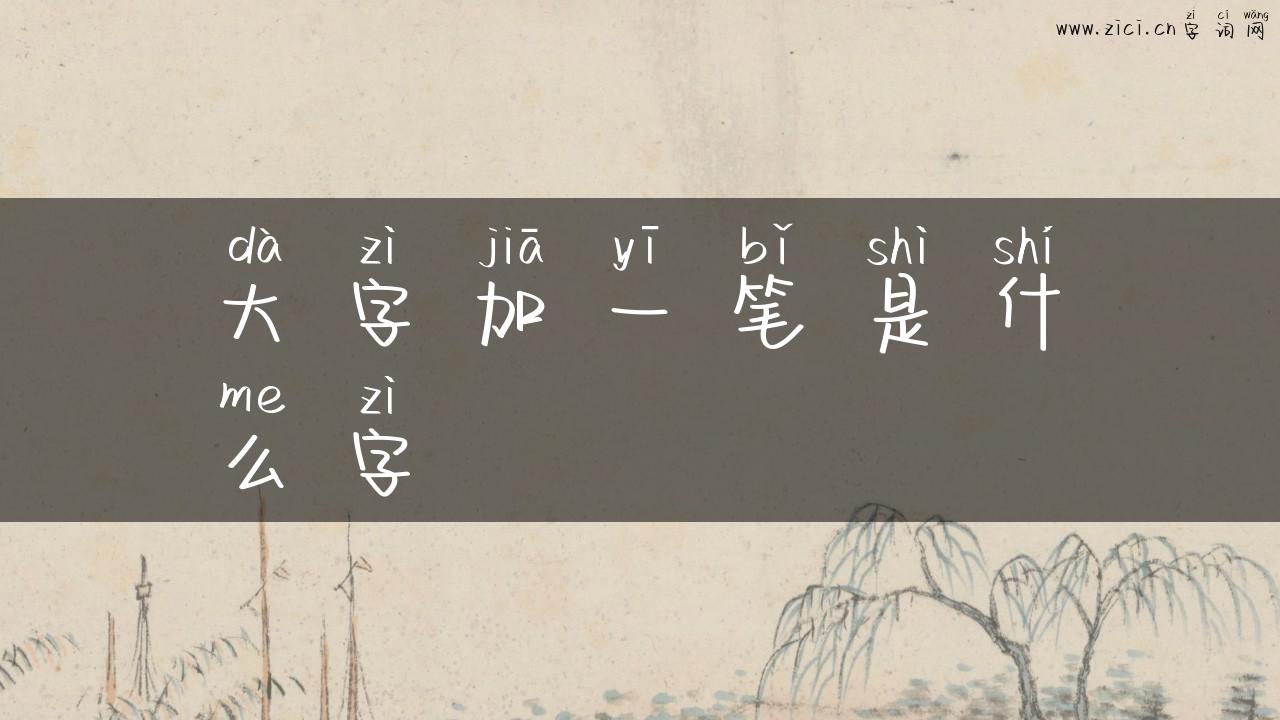 www.zici.cn zì cí wǎng
字词网
dà zì jiā yī bǐ shì shí
大字加一笔是什
me zì
么字